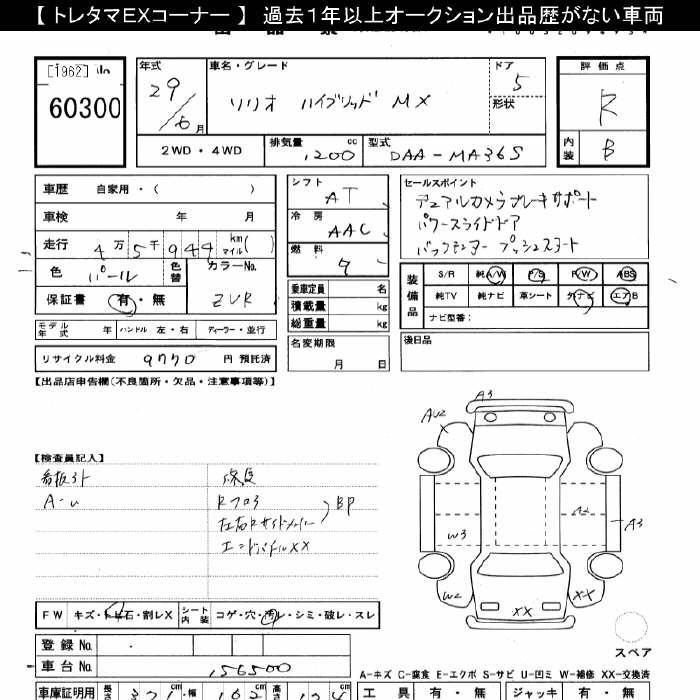 【 トレタマEXコーナー 】 過去１年以上オークション出品歴がない車両
[1962]
60300
年式
29
6月
車名・グレード
ソリオ ハイブリッド MX
ドア
5
形状
評価点
R
内装
B
2WD・4WD
排気量
1200cc
型式
DAA-MA36S
車歴 自家用・( )
車検 年 月
走行 4万5千944 km マイル( )
色 パール
色替
カラーNo.
ZVR
保証書 有・無
モデル年式 年 ハンドル 左・右 ディーラー・並行
リサイクル料金 9770 円 預託済
シフト
AT
冷房
AAC
燃料
ガ
乗車定員 名
積載量 kg
総重量 kg
名変期限
月 日
セールスポイント
デュアルカメラブレーキサポート
パワースライドドア
プッシュスタート
装備品
S/R 純A/W P/S P/W ABS
純TV 純ナビ 革シート 外ナビ エアB
ナビ型番:
後日品
【出品店申告欄(不良箇所・欠品・注意事項等)】
【検査員記入】
看板跡
A-U
修復
Rフロア
BP
XX
A3
AU2
A2
A3
W3
W2
XX
XX
スペア
FW キズ・飛石・割レX
シート内装 コゲ・穴・汚レ・シミ・破レ・スレ
登録 No.
車台 No. 156500
A-キズ C-腐食 E-エクボ S-サビ U-凹ミ W-補修 XX-交換済
車庫証明用 長さ 371cm 幅 162cm 高さ 174cm
工具 有・無 ジャッキ 有・無